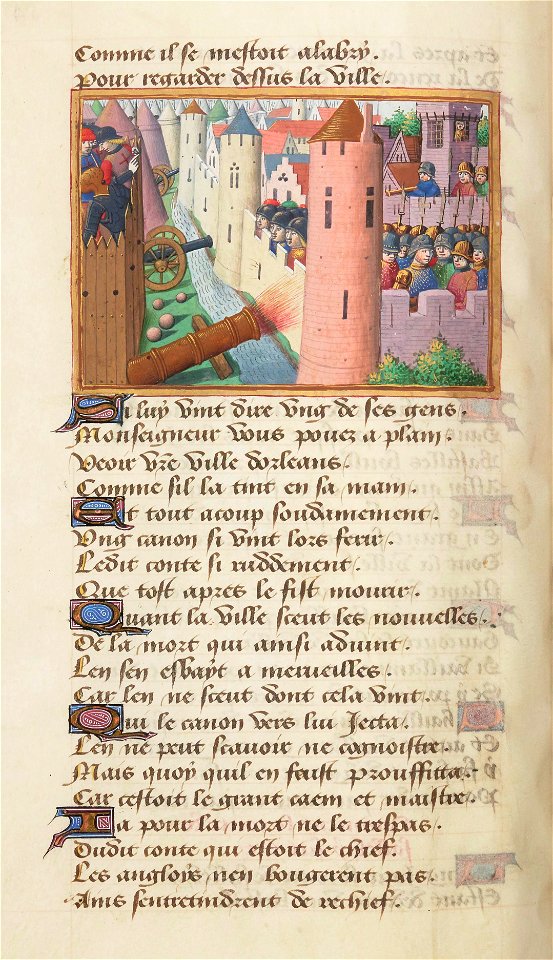 Comme il se mectoit alabry.
Pour regarder dessus la ville.
Si luy vint dire vng de ses gens.
Monseigneur vous pouez a plain.
Veoir vr̄e ville dorleans.
Comme sil la tint en sa main.
Et tout acoup soudainement.
Vng canon si vint lors ferir.
Ledit conte si raddement.
Que tost apres le fist mourir.
Quant la ville sceut les nouuelles.
De la mort qui ainsi aduint.
Len sen esbayt a merueilles.
Car len ne sceut dont cela vint.
Qui le canon vers lui Jecta.
Len ne peut scauoir ne cognoistre.
Mais quoy quil en feust prouffitta.
Car cestoit le grant et maistre.
Ia pour la mort ne le trespas.
Dudit conte qui estoit le chief.
Les angloys nen bougerent pas.
Ains sentretindrent de rechief.